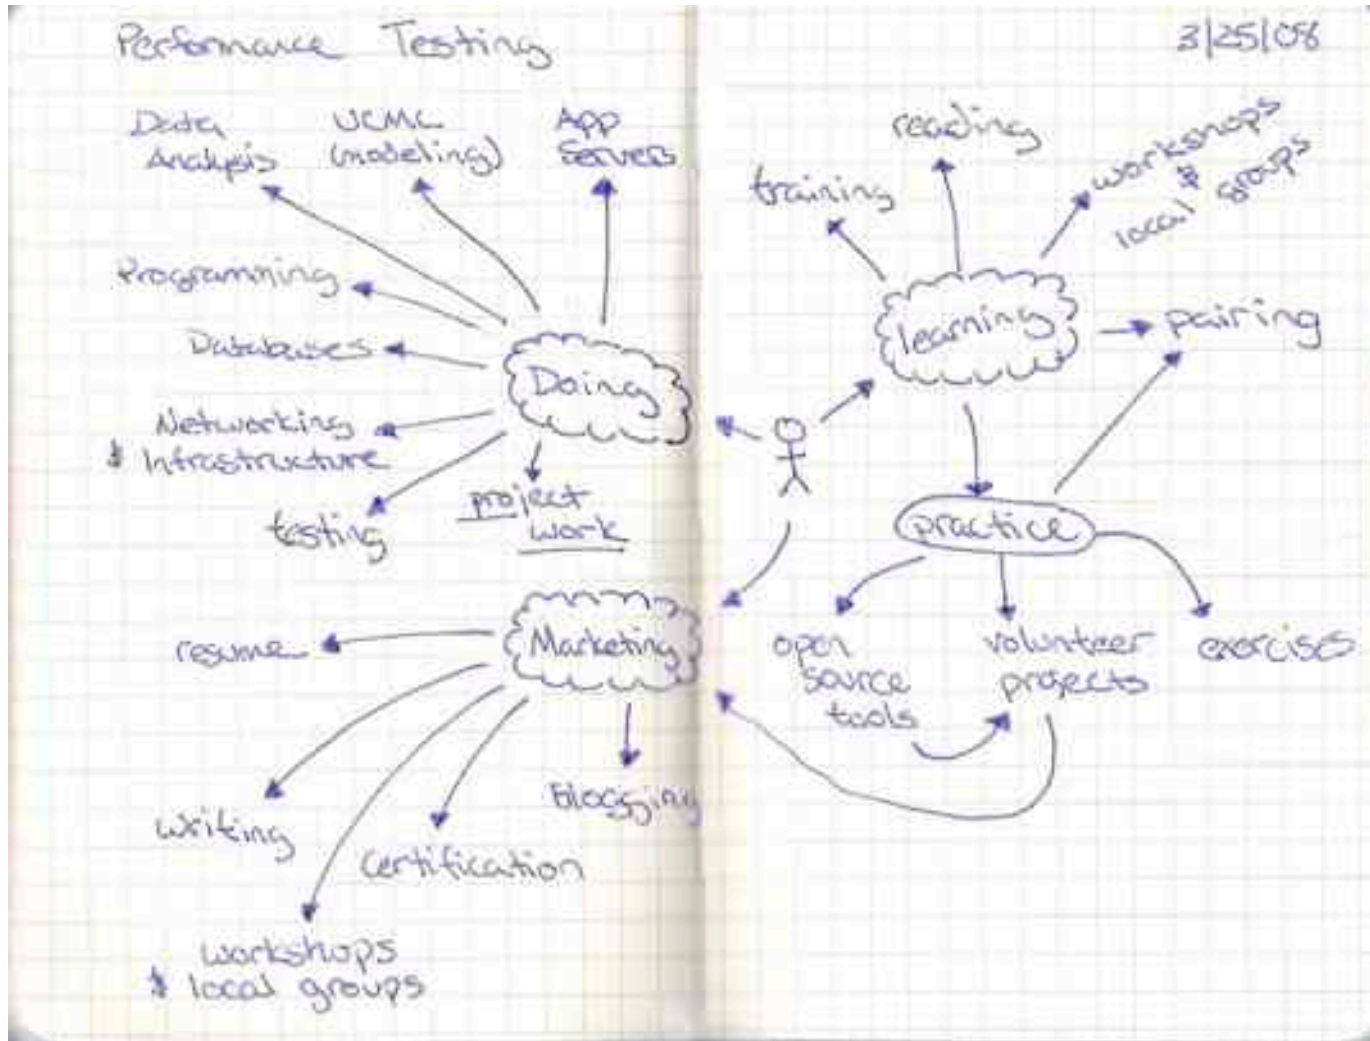 Performance Testing
3/25/08
Data
Analysis
UCML
(modeling)
App
Servers
Programming
Databases
Networking
& Infrastructure
testing
Doing
project
work
Marketing
resume
writing
workshops
& local groups
certification
Blogging
training
reading
workshops
&
local groups
learning
pairing
practice
open
source
tools
volunteer
projects
exercises